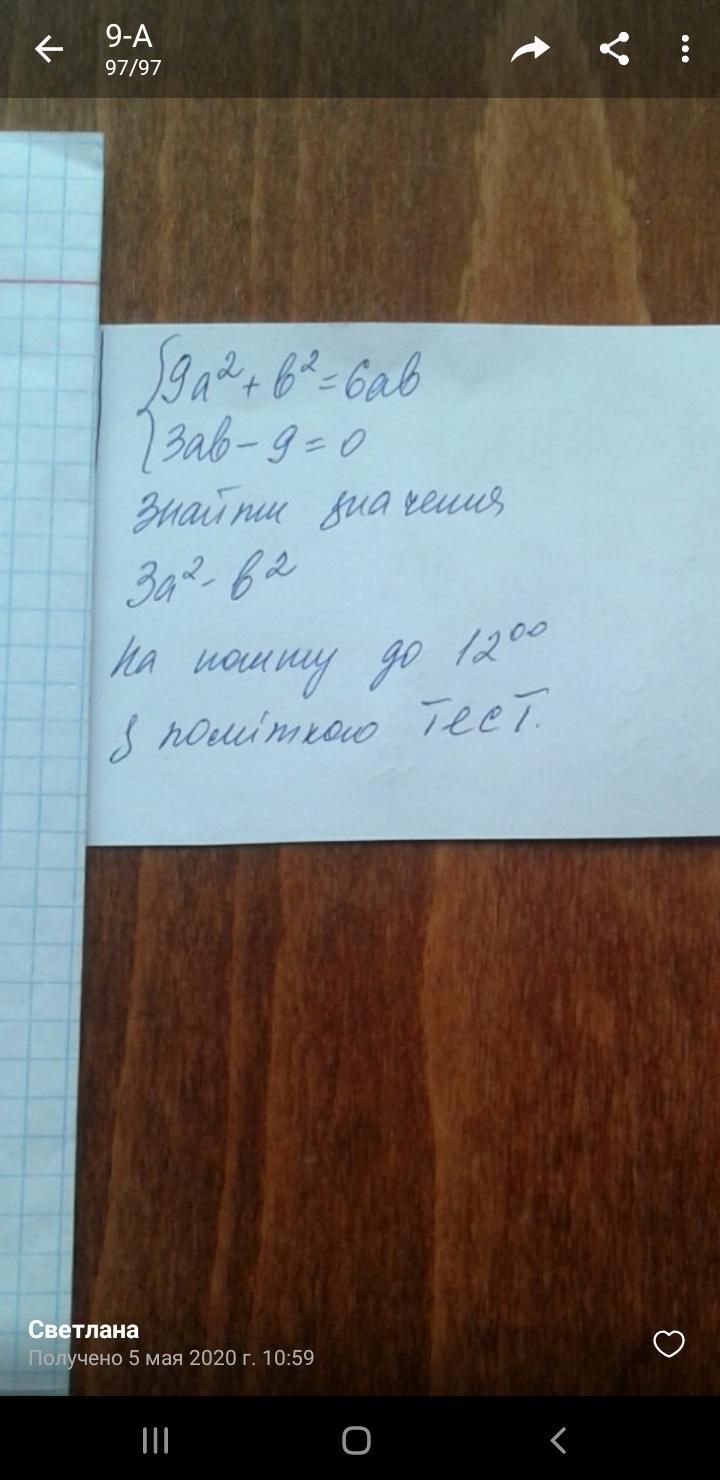 9-А
97/97
9a² + b² = 6ab
3ab - 9 = 0
Знайти значення
3a² - b²
На пошту до 12⁰⁰
З поміткою Тест.
Светлана
Получено 5 мая 2020 г. 10:59